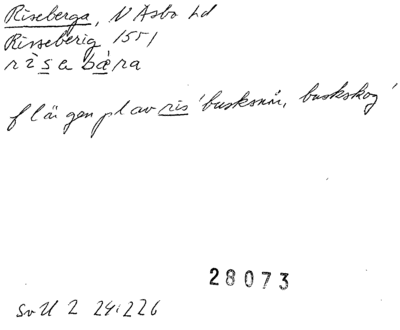 Riseberga, N Åsbo hd
Risseberig 1551
rìsabæ̀ra
f län gen pl av ris 'busksnår, buskskog'
28073
SvU 2 24:226